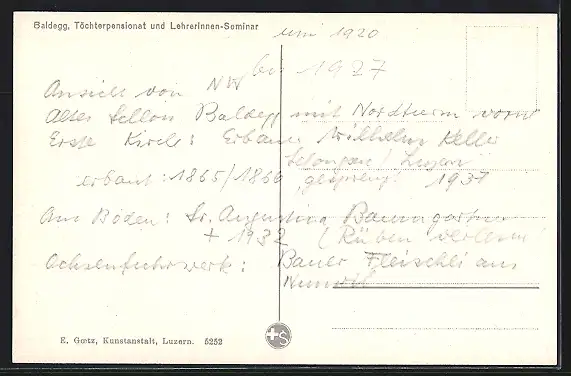 Baldegg, Töchterpensionat und Lehrerinnen-Seminar
um 1920
bis 1927
Ansicht von NW
Altes Schloss Baldegg mit Nordturm vorne
Erste Kirche: Erbauer Wilhelm Keller
Luzern
erbaut: 1865/1866 gesprengt 1937
Am Boden: Sr. Augustina Baumgartner
+ 1932 (Rüben
Ochsenfuhrwerk: Bauer Fleischli aus
E. Gœtz, Kunstanstalt, Luzern. 5252
S